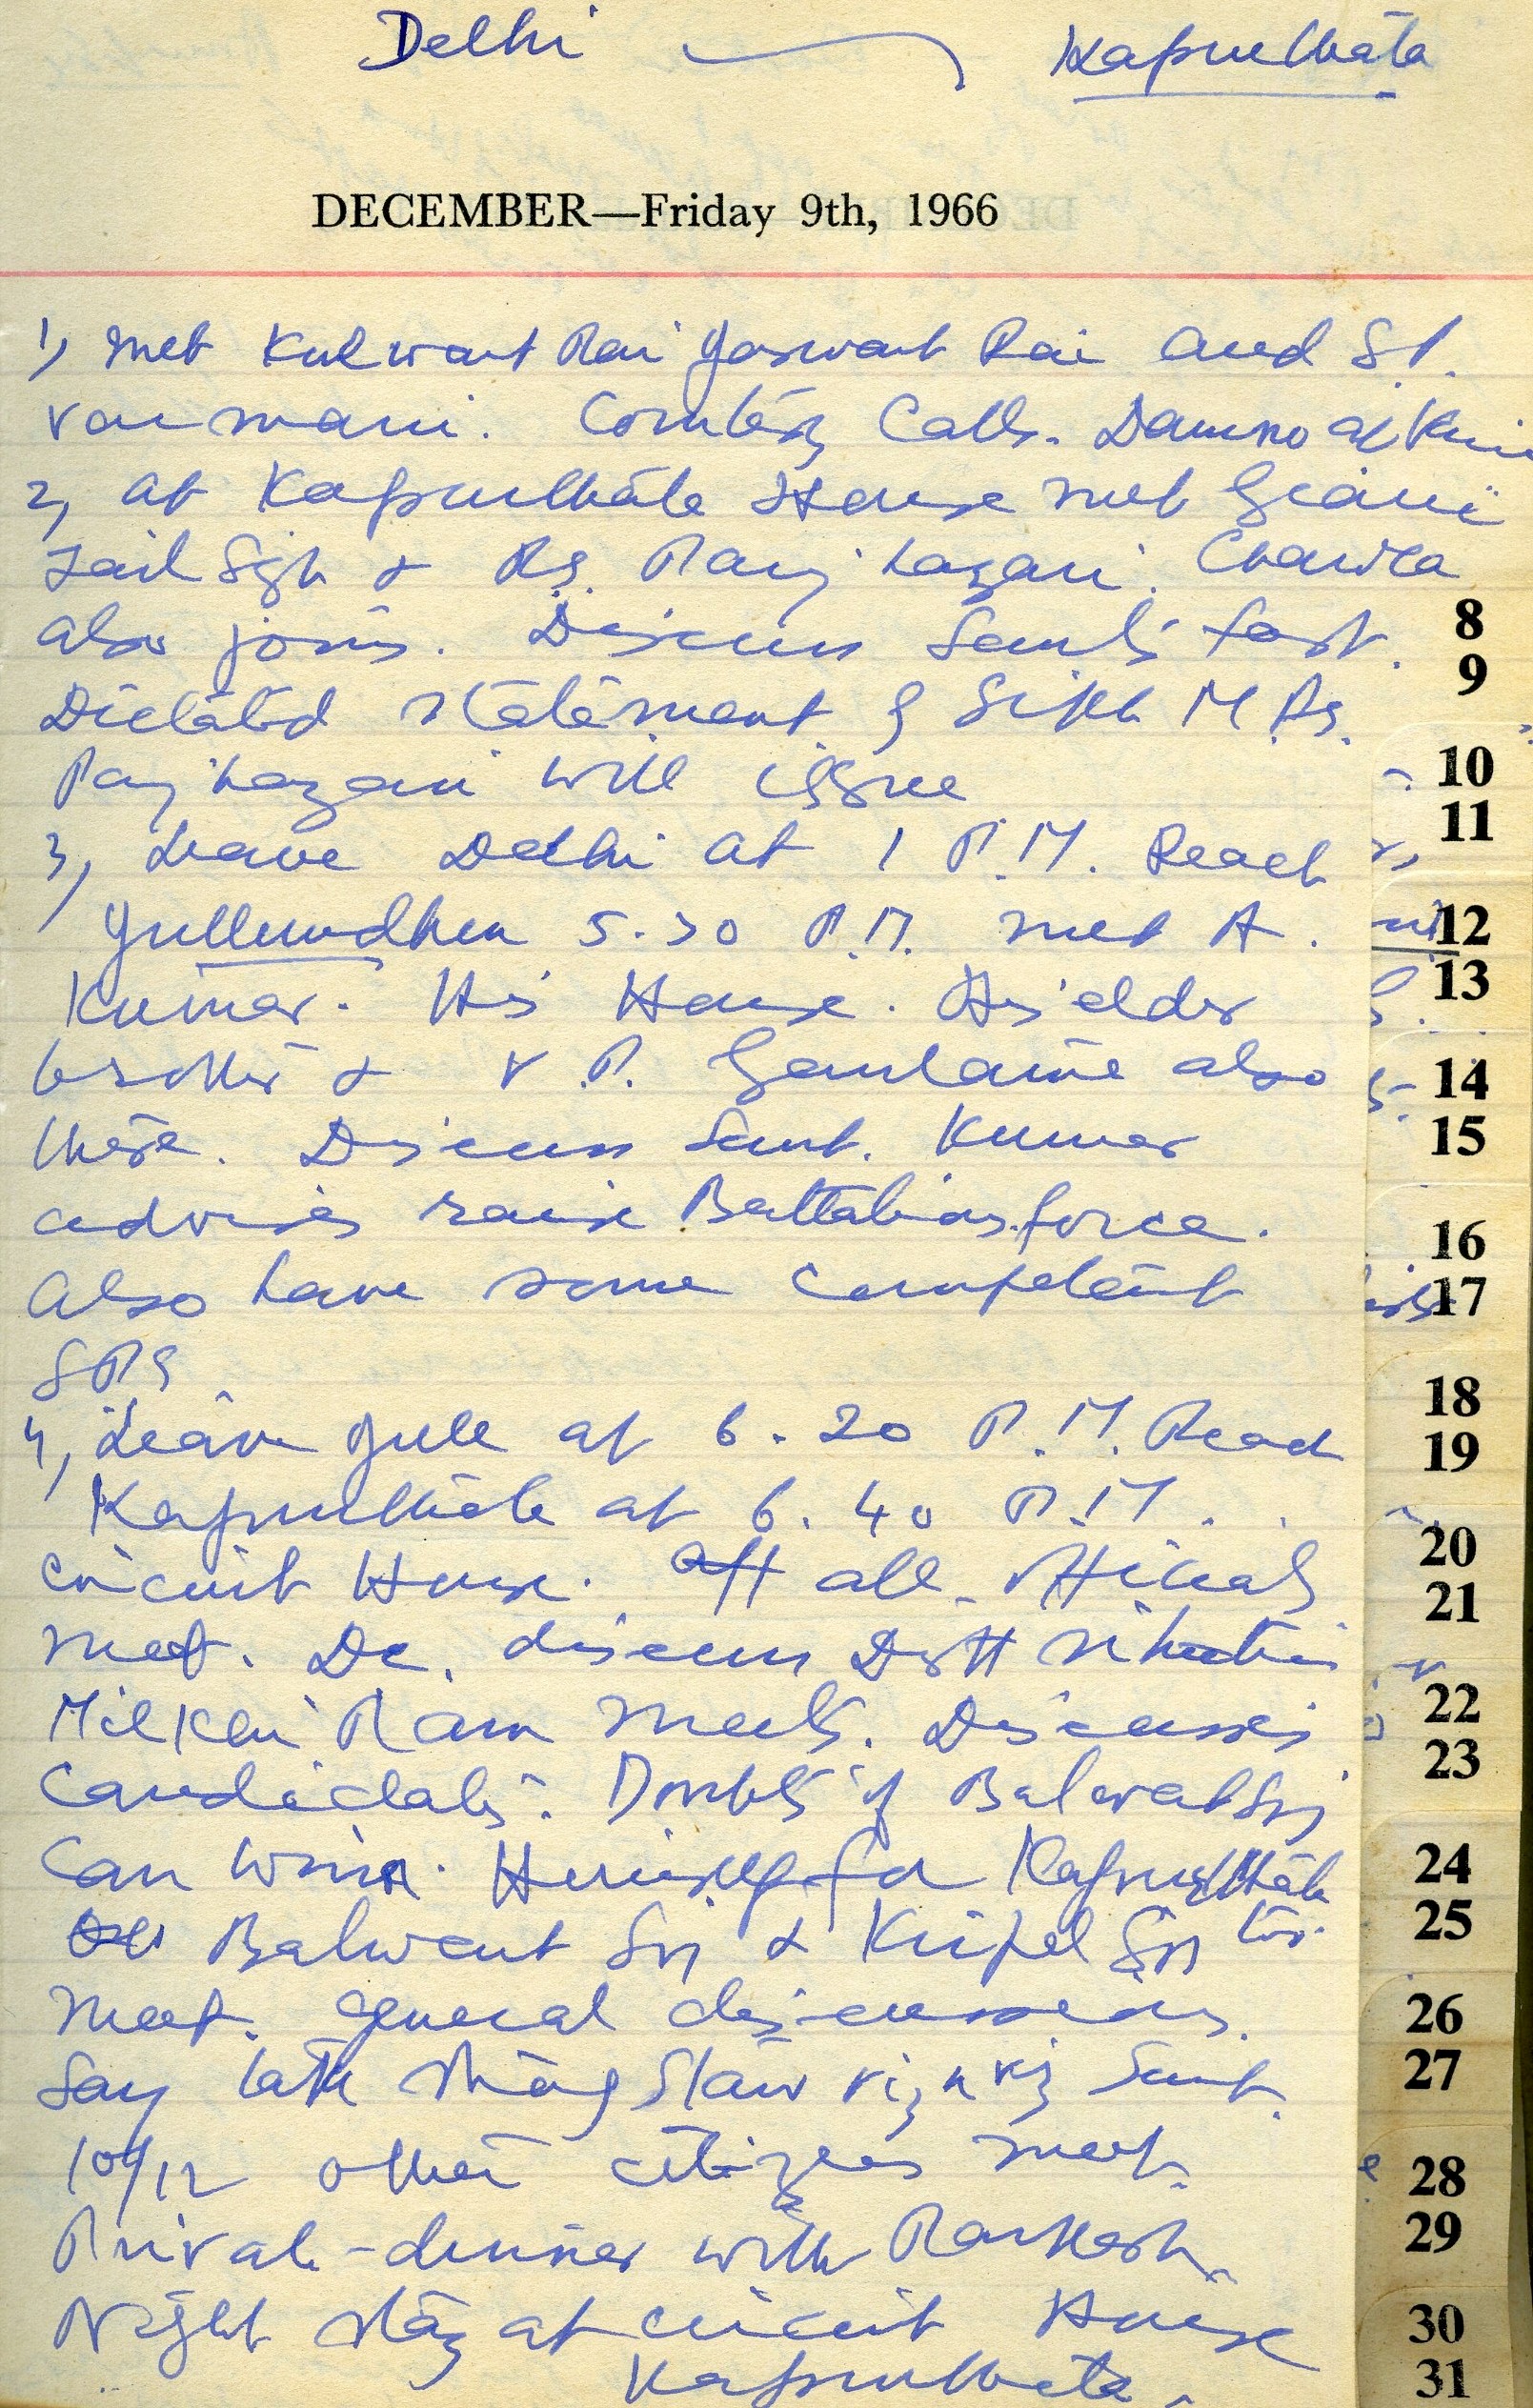 Delhi Kapurthala
DECEMBER—Friday 9th, 1966
1, met Kulwant Rai Jaswant Rai and
Courtesy Calls.
2, at Kapurthala House met Giani
Zail Sgh & Chawla
also joins. Discuss Sant's fast.
Dictated statement of Sikh M.Ps.
will issue
3, Leave Delhi at 1 P.M. Reach
Jullundhur 5.30 P.M. met A.
Kumar. His House. His elder
brother & V.P. also
there. Discuss Sant. Kumar
advises raise Battalions force.
Also have some competent
SPS
4, Leave Jull at 6.20 P.M. Reach
Kapurthala at 6.40 P.M.
circuit House. all officials
meet. DC. discuss Distt situation
Milkhi Ram meets. Discusses
candidates. Doubts if Balwant Sgh
can win. Himself for Kapurthala
Balwant Sgh & Kirpal Sgh too
meet. general discussions.
Say take strong stand viz a viz Sant.
10/12 other citizens meet.
Private dinner with
Night stay at circuit House
Kapurthala.
8
9
10
11
12
13
14
15
16
17
18
19
20
21
22
23
24
25
26
27
28
29
30
31